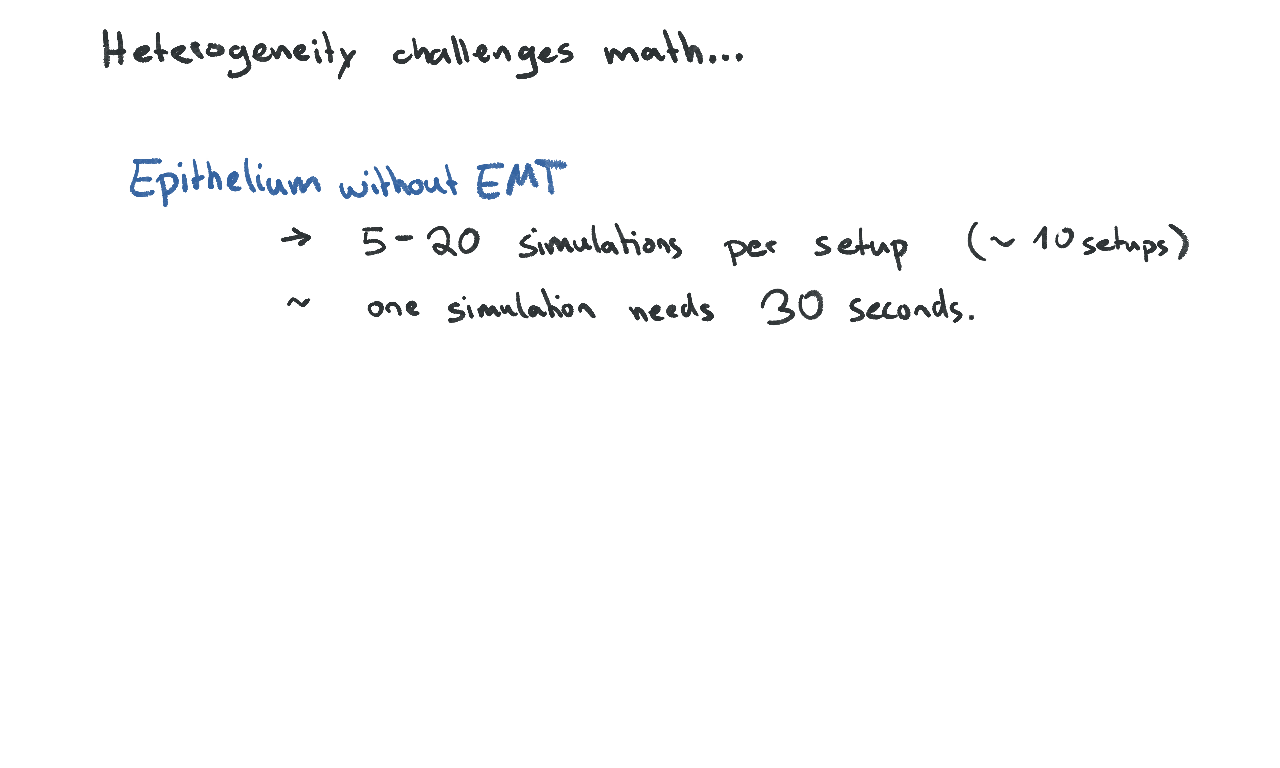 Heterogeneity challenges math...
Epithelium without EMT
→ 5-20 simulations per setup (~ 10 setups)
~ one simulation needs 30 seconds.